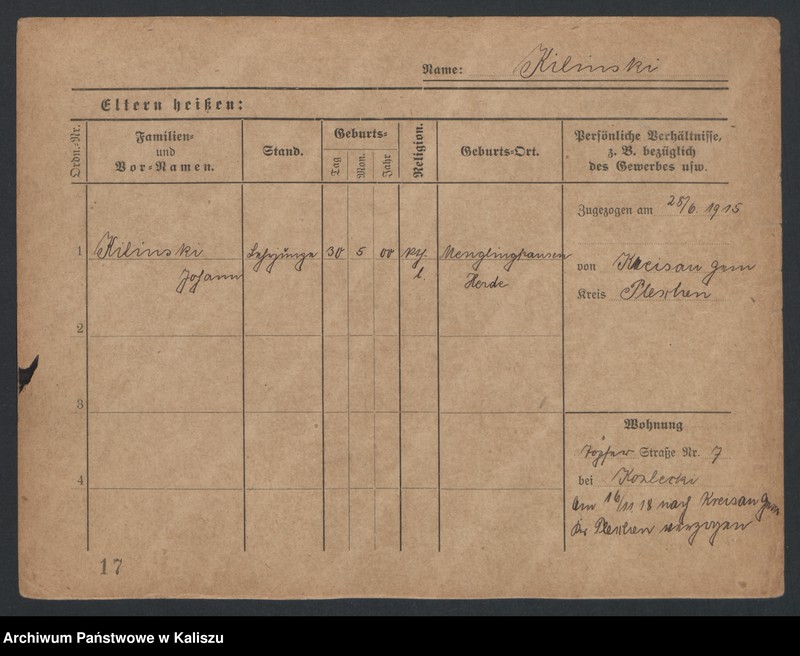 Name: Kilinski
Eltern heißen:
Ordn.-Nr.
Familien=
und
Vor=Namen.
Stand.
Geburts=
Tag
Mon.
Jahr
Religion.
Geburts=Ort.
Persönliche Verhältnisse,
z. B. bezüglich
des Gewerbes usw.
Zugezogen am 28/6. 1915
1 Kilinski Lehrjunge 30 5 00 Menglinghausen
Johann Herde
von Kreisau gem
Kreis Pleschen
2
3
4
Wohnung
Töpfer Straße Nr. 7
bei Koslecki
Am 16/11 18 nach Kreisau Gem
Kr Pleschen verzogen
17
Archiwum Państwowe w Kaliszu